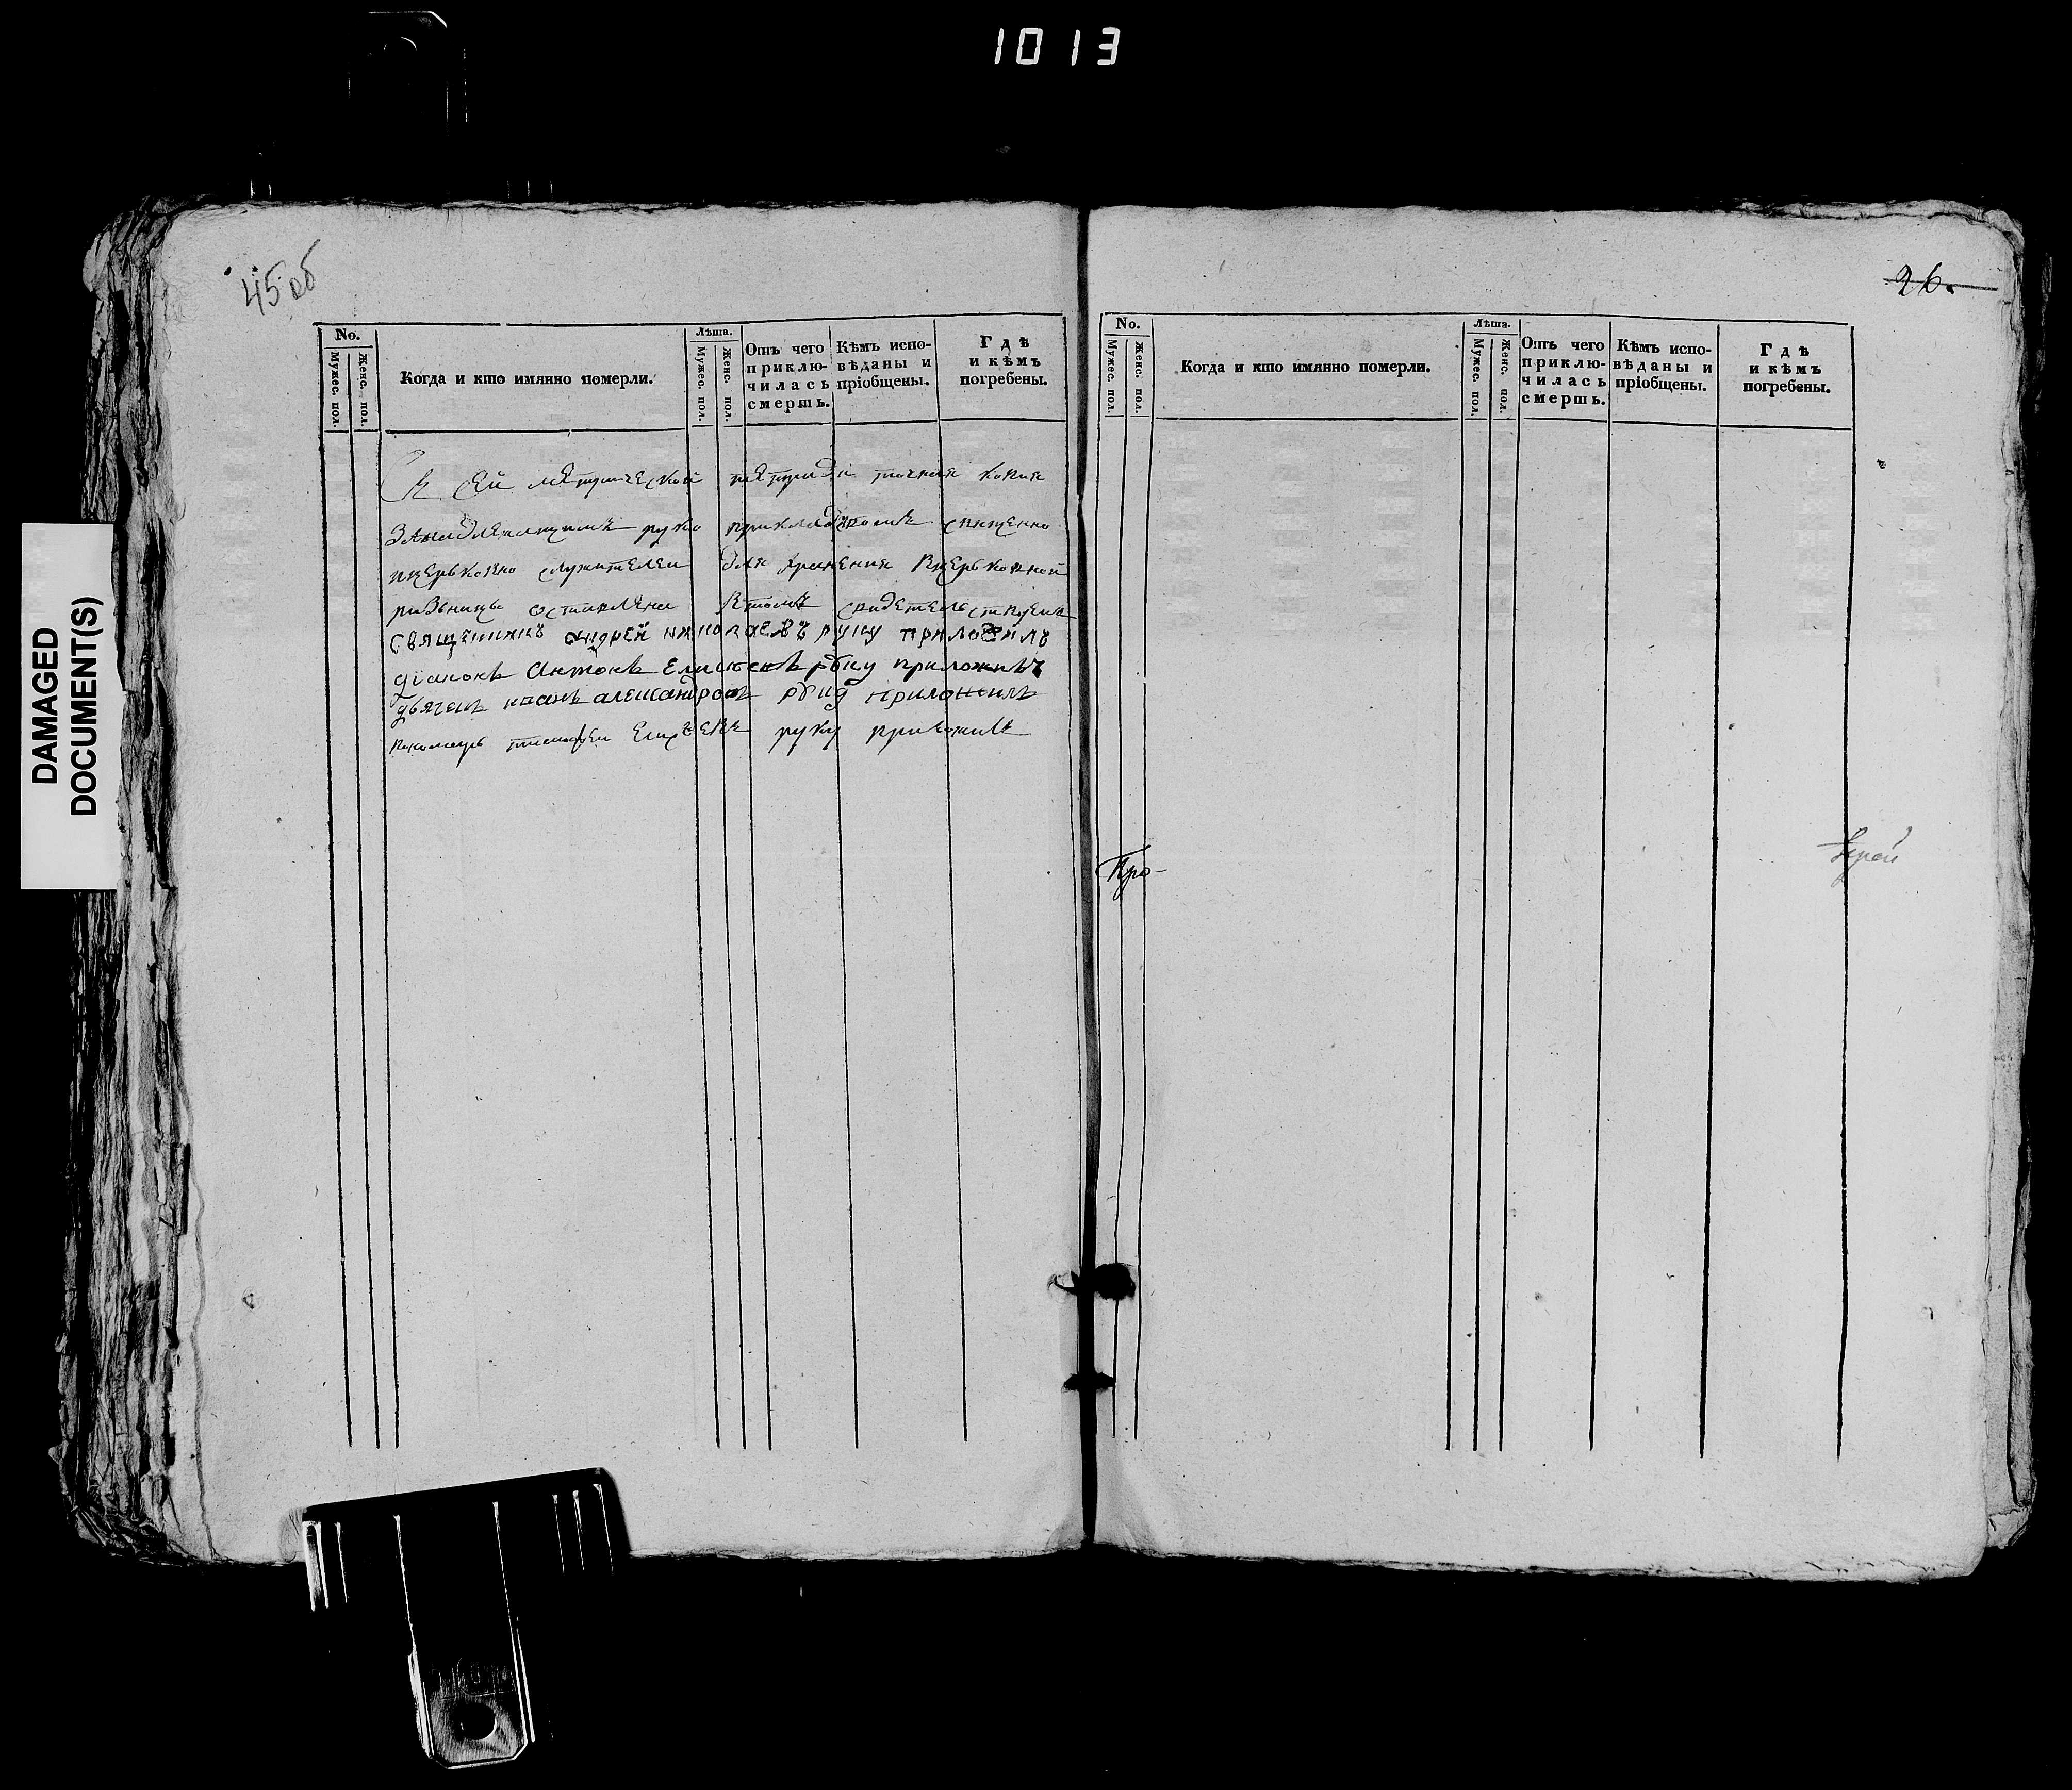 1013
DAMAGED
DOCUMENT(S)
45 об
No.
Мужес. пол.
Женс. пол.
Когда и кто имянно померли.
Лѣта.
Мужес. пол.
Женс. пол.
Отъ чего
приклю-
чилась
смерть.
Кѣмъ испо-
вѣданы и
пріобщены.
Гдѣ
и кѣмъ
погребены.
С сей метрической тетради точная копия
за подлежащимъ руко прикладствомъ священно
ицерьковно служителеи для хранения вцерьковной
ризьнице оставлена втомъ свидетельствуемъ
священникъ андрей николаевъ руку приложилъ
діаконъ Антонъ Елисеевъ руку приложилъ
дьячекъ иванъ александровъ руку приложилъ
понамарь тимофеи руку приложилъ
26.
No.
Мужес. пол.
Женс. пол.
Когда и кто имянно померли.
Лѣта.
Мужес. пол.
Женс. пол.
Отъ чего
приклю-
чилась
смерть.
Кѣмъ испо-
вѣданы и
пріобщены.
Гдѣ
и кѣмъ
погребены.
Про-